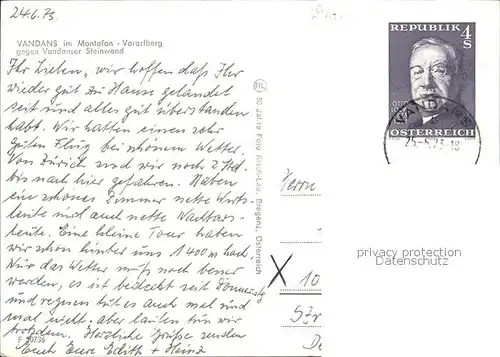 24.6.73
VANDANS im Montafon - Vorarlberg
gegen Vandanser Steinwand
Ihr Lieben, wir hoffen daß Ihr
wieder gut zu Hause gelandet
seit und alles gut überstanden
habt. Wir hatten einen sehr
Guten Flug bei schönem Wetter.
Von Zürich sind wir noch 2 Std.
bis nach hier gefahren. Haben
ein schönes Zimmer nette Wirts-
leute und auch nette Nachbars-
leute. Eine kleine Tour haben
wir schon hinter uns 1400 m hoch.
Nur das Wetter muß noch besser
werden, es ist bedeckt seit Donnerstg
und regnen tut es auch mal und
mal nicht. Aber laufen tun wir
trotzdem. Herzliche Grüße senden
Euch Eure Edith + Heinz
F 30736
RL
60 Jahre Foto Risch-Lau, Bregenz, Österreich
REPUBLIK 4
S
ÖSTERREICH
VANDANS
25.-6.73-18
Herrn
X 10
privacy protection
Datenschutz